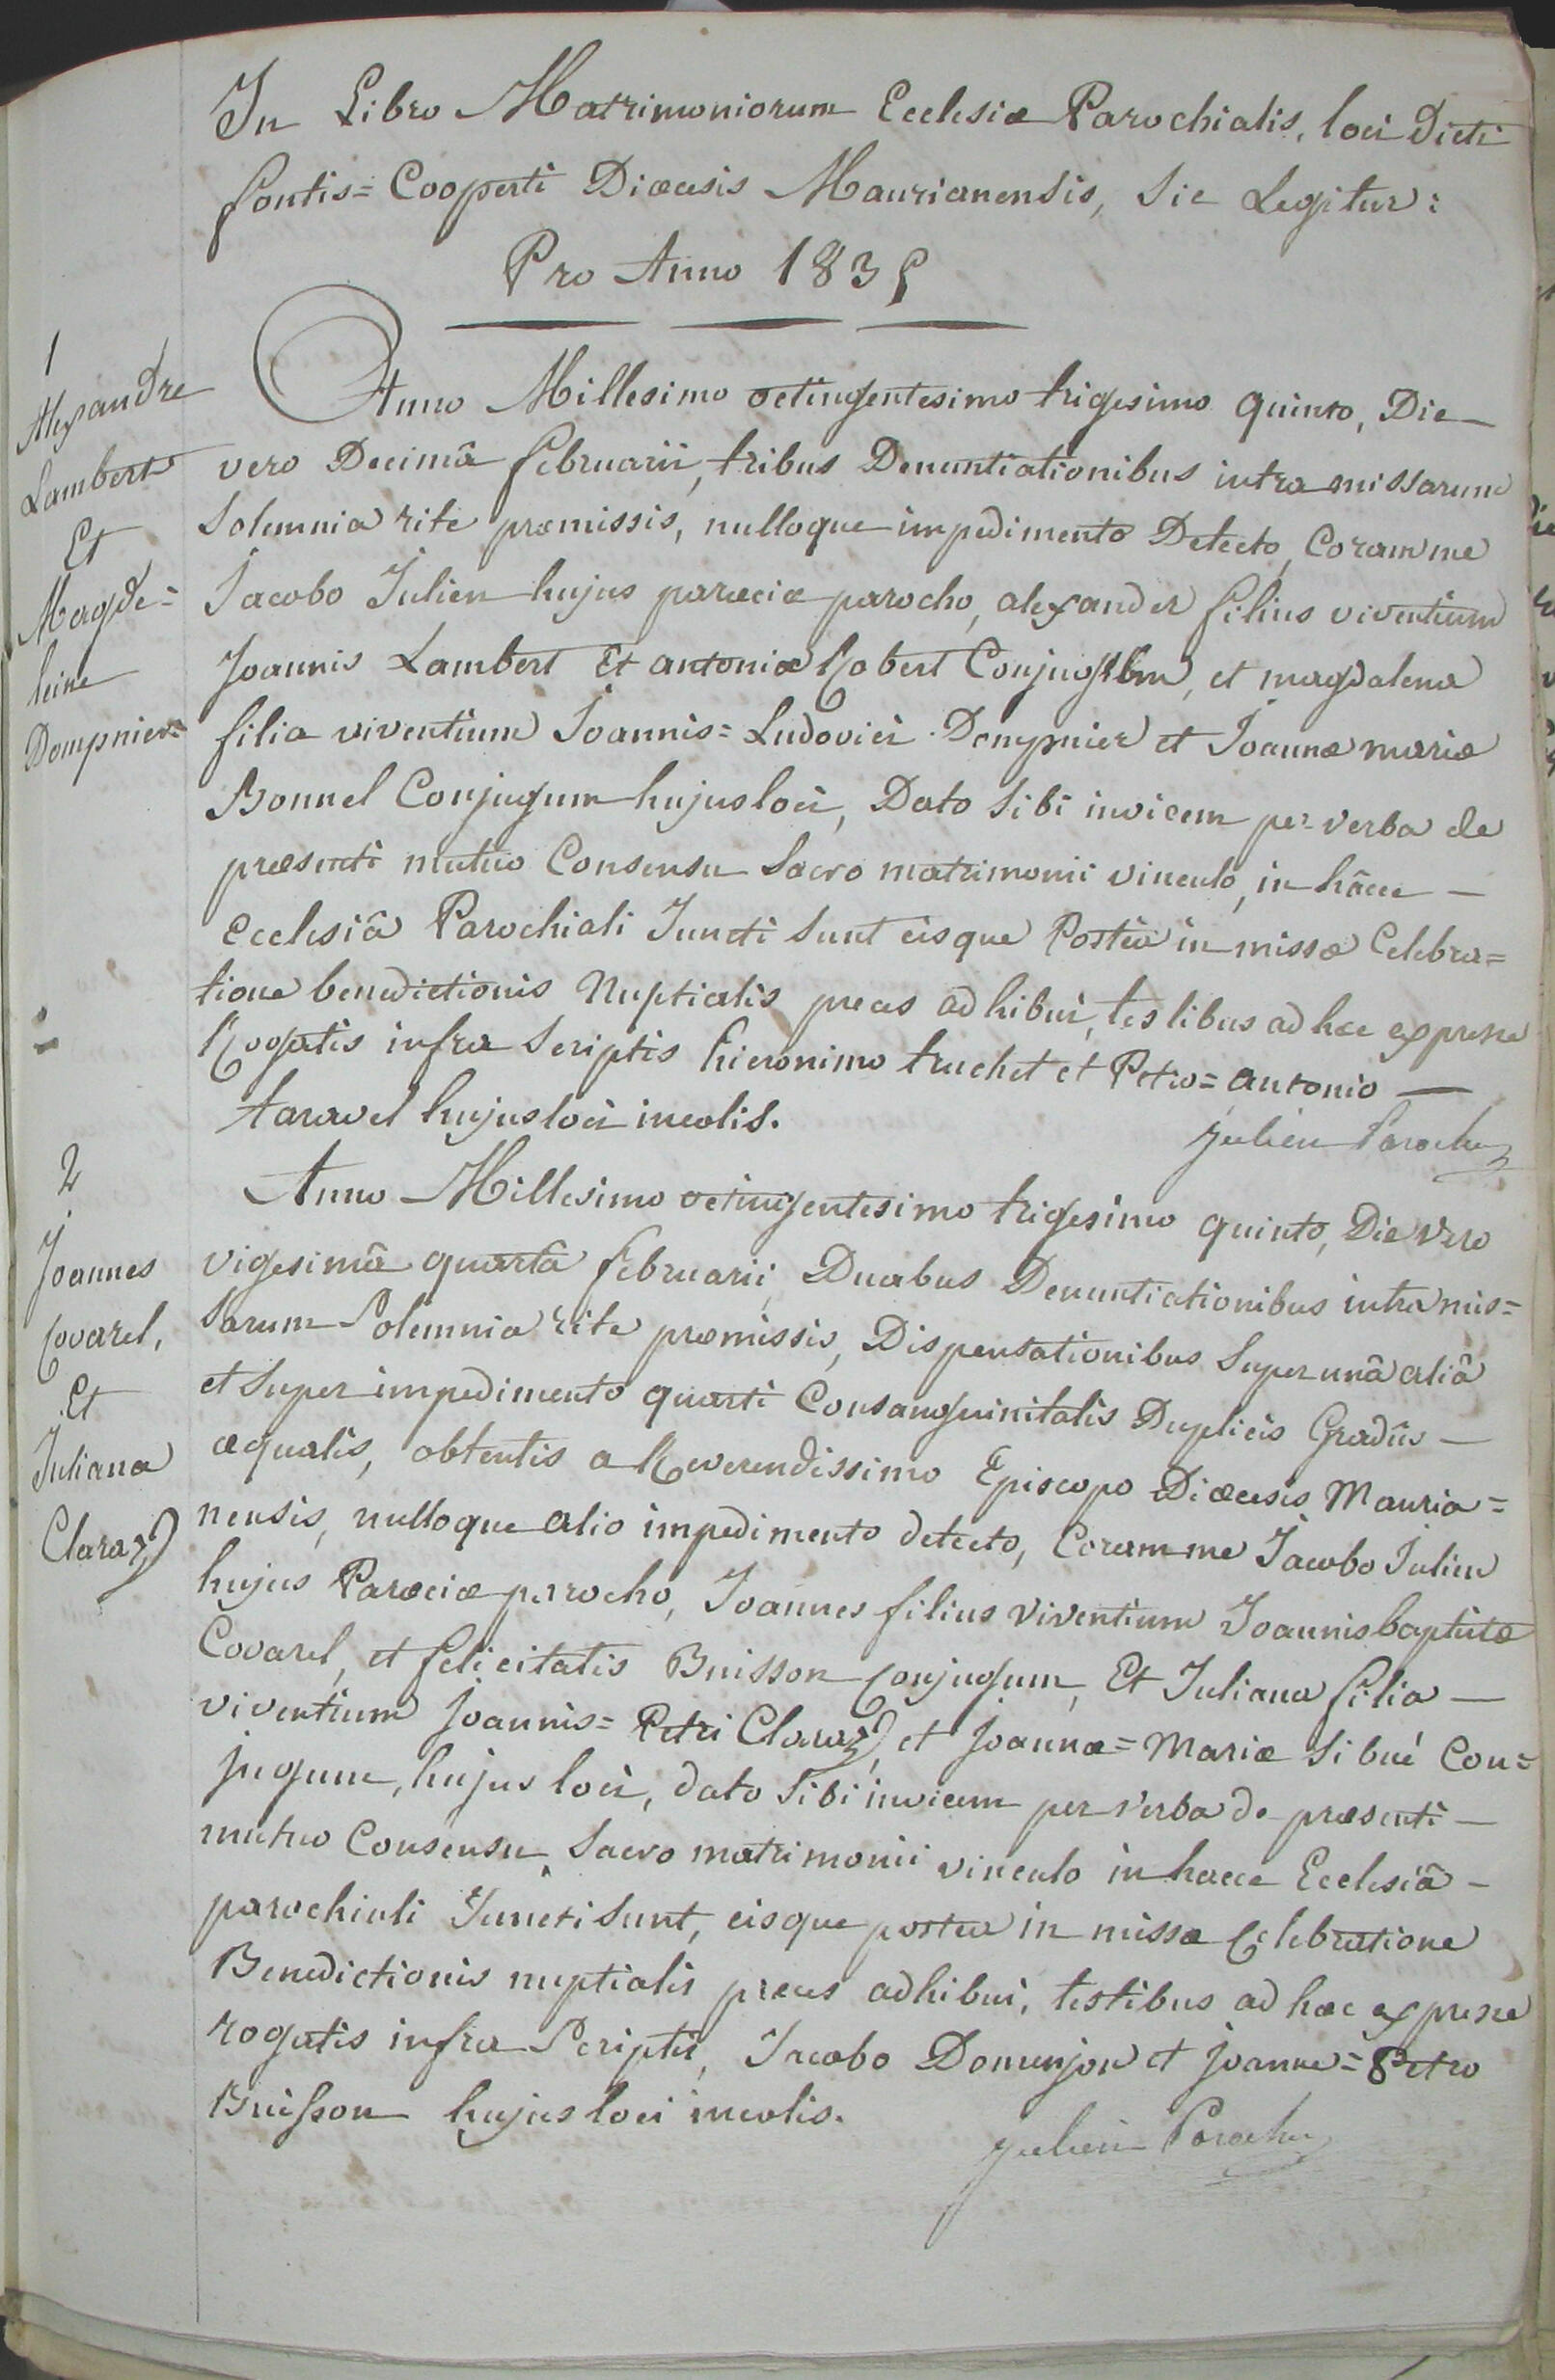 In Libro Matrimoniorum Ecclesiæ Parochialis, loci Dicti
fontis=Cooperti Diœcesis Maurianensis, Sic Legitur:
Pro Anno 1835
1
Alexandre
Lambert
Et
Magde=
leine
Dompnier=
Anno Millesimo octingentesimo trigesimo quinto, Die
vero Decimâ februarii, tribus Denuntiationibus intra missarum
Solemnia rite præmissis, nulloque impedimento Detecto, Coram me
Jacobo Julien hujus parœciæ parocho, alexander filius viventium
Joannis Lambert Et antoniæ Robert Conjugum, et magdalena
filia viventium Joannis=Ludovici Dompnier et Joannæ mariæ
Bonnel Conjugum hujus loci, Dato Sibi invicem per verba de
præsenti mutuo Consensu Sacro matrimonii vinculo, in hâcce
Ecclesiâ Parochiali Juncti Sunt eisque Postea in missæ Celebra=
tione benedictionis Nuptialis preces adhibui, testibus ad hæc expresse
Rogatis infra Scriptis hieronimo truchet et Petro=antonio
taravel hujus loci incolis.
julien Parochus
2
Joannes
Covarel,
Et
Juliana
Claraz
Anno Millesimo octingentesimo trigesimo quinto, Die vero
vigesimâ quartâ februarii, Duabus Denuntiationibus intra mis=
sarum Solemnia rite præmissis, Dispensationibus Super unâ aliâ
et Super impedimento quarti Consanguinitatis Duplicis Gradûs
æqualis, obtentis a Reverendissimo Episcopo Diœcesis Mauria=
nensis, nulloque alio impedimento detecto, Coram me Jacobo Julien
hujus Parœciæ parocho, Joannes filius viventium Joannis baptistæ
Covarel, et felicitatis Buisson Conjugum, Et Juliana filia
viventium Joannis=Petri Claraz, et Joannæ=Mariæ Sibué Con=
jugum, hujus loci, dato Sibi invicem per verba de præsenti
mutuo Consensu, Sacro matrimonii vinculo in hacce Ecclesiâ
parochiali Juncti Sunt, eisque postea in missæ Celebratione
Benedictionis nuptialis preces adhibui, testibus ad hæc expresse
rogatis infra Scriptis, Jacobo Domenjon et joanne=Petro
Buisson hujus loci incolis.
julien Parochus